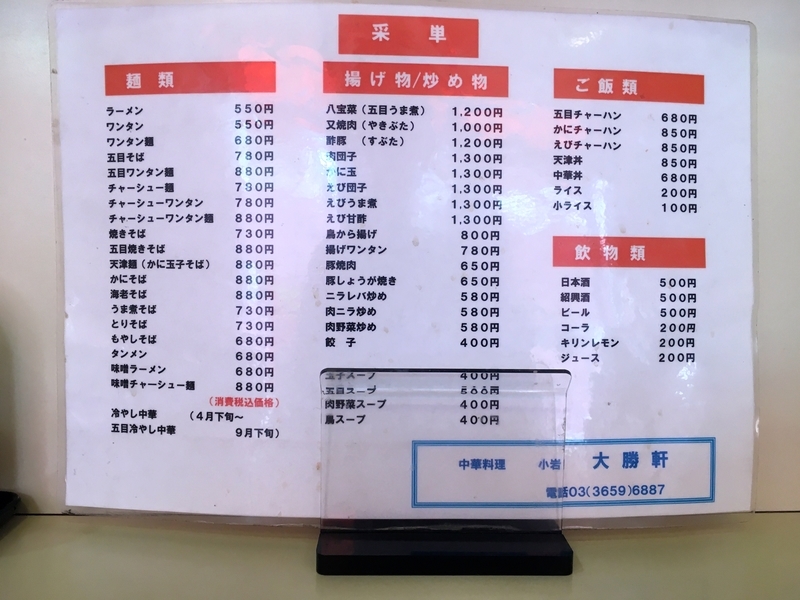 采単
麺類
ラーメン 550円
ワンタン 550円
ワンタン麺 680円
五目そば 780円
五目ワンタン麺 880円
チャーシュー麺 730円
チャーシューワンタン 780円
チャーシューワンタン麺 880円
焼きそば 730円
五目焼きそば 880円
天津麺（かに玉子そば） 880円
かにそば 880円
海老そば 880円
うま煮そば 730円
とりそば 730円
もやしそば 680円
タンメン 680円
味噌ラーメン 680円
味噌チャーシュー麺 880円
（消費税込価格）
冷やし中華 （4月下旬〜
五目冷やし中華 9月下旬）
揚げ物/炒め物
八宝菜（五目うま煮） 1,200円
又焼肉（やきぶた） 1,000円
酢豚 （すぶた） 1,200円
肉団子 1,300円
かに玉 1,300円
えび団子 1,300円
えびうま煮 1,300円
えび甘酢 1,300円
鳥から揚げ 800円
揚げワンタン 780円
豚焼肉 650円
豚しょうが焼き 650円
ニラレバ炒め 580円
肉ニラ炒め 580円
肉野菜炒め 580円
餃子 400円
玉子スープ 400円
五目スープ 500円
肉野菜スープ 400円
鳥スープ 400円
ご飯類
五目チャーハン 680円
かにチャーハン 850円
えびチャーハン 850円
天津丼 850円
中華丼 680円
ライス 200円
小ライス 100円
飲物類
日本酒 500円
紹興酒 500円
ビール 500円
コーラ 200円
キリンレモン 200円
ジュース 200円
中華料理 小岩 大勝軒
電話03(3659)6887